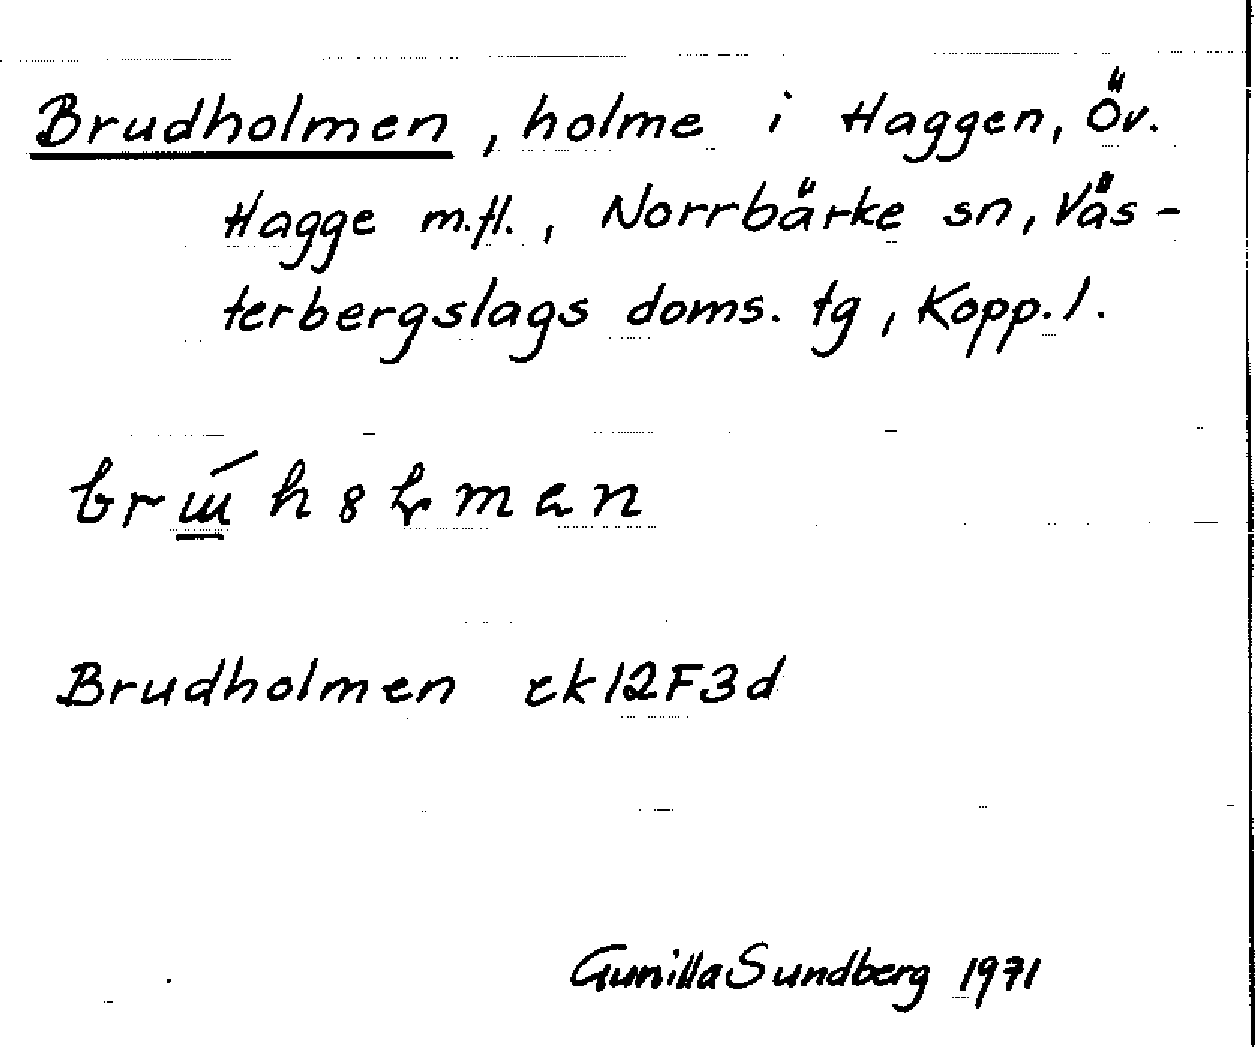 Brudholmen, holme i Haggen, Öv.
Hagge m.fl., Norrbärke sn, Väs-
terbergslags doms. tg, Kopp. l.
Brudholmen ek 12F3d
Gunilla Sundberg 1971